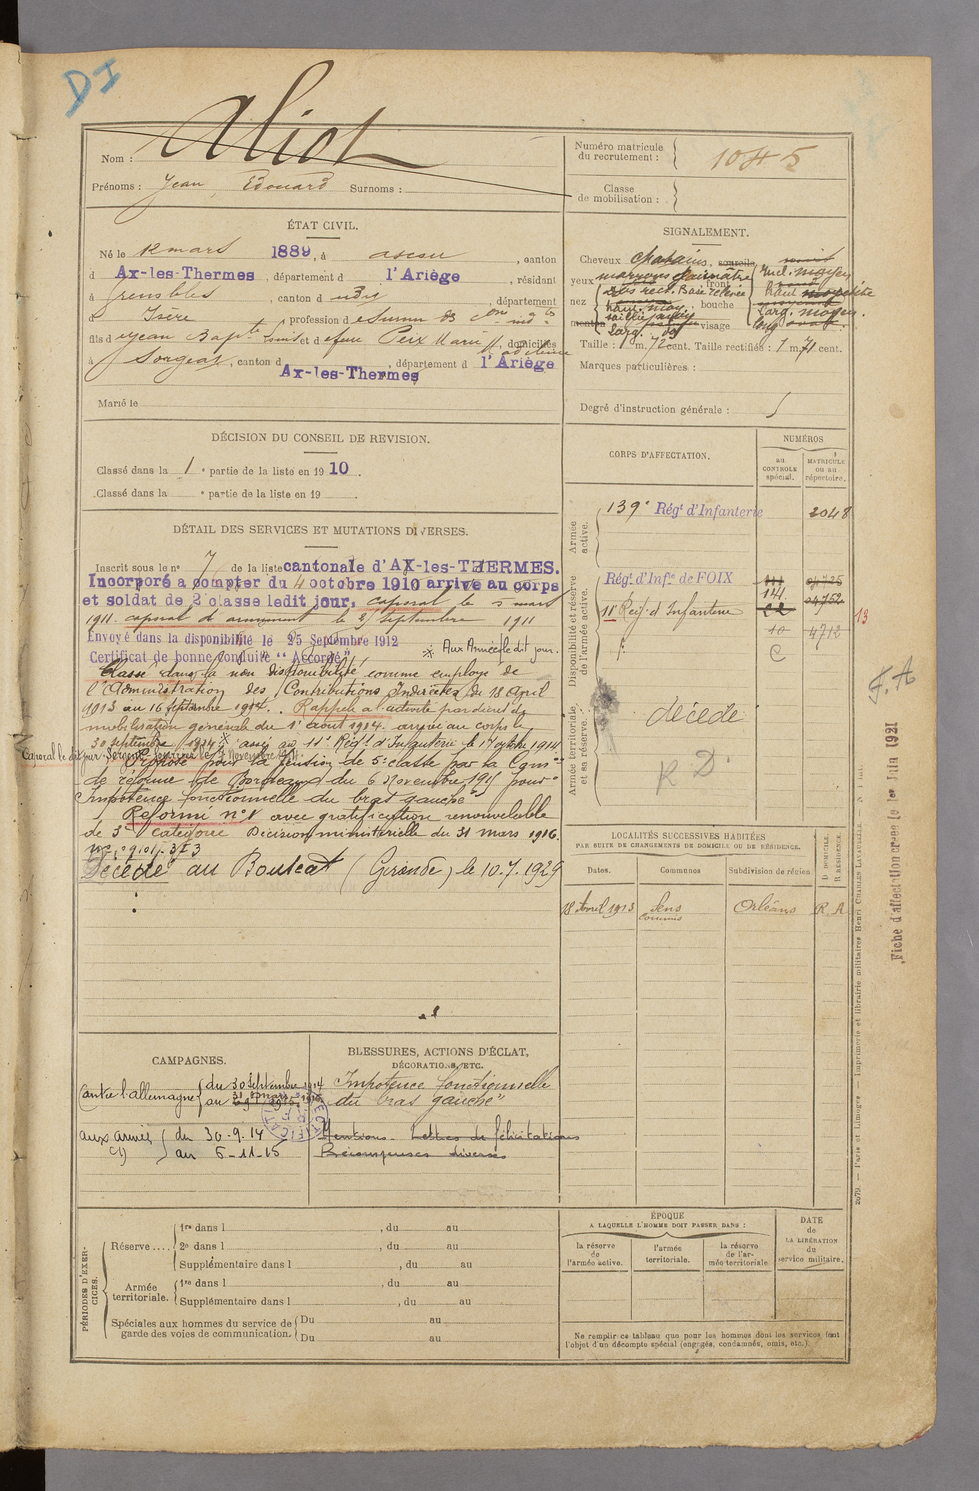 DI
Nom : Aliot
Prénoms : Jean, Edouard Surnoms :
Numéro matricule du recrutement : 1045
Classe de mobilisation :
ÉTAT CIVIL.
Né le 12 mars 1889, à Ascou, canton
d Ax-les-Thermes, département d l'Ariège, résidant
à Grenoble, canton d udit, département
d Isère, profession d
fils d Jean Bapt et d domiciliés
à Sorgeat, canton d Ax-les-Thermes, département d l'Ariège
Marié le
SIGNALEMENT.
Cheveux chatains, sourcils
yeux front
nez rect. Base relevée, bouche
menton visage
Taille : 1 m. 72 cent. Taille rectifiée : 1 m. 71 cent.
Marques particulières :
Degré d'instruction générale :
DÉCISION DU CONSEIL DE REVISION.
Classé dans la 1e partie de la liste en 1910.
Classé dans la e partie de la liste en 19 .
DÉTAIL DES SERVICES ET MUTATIONS DIVERSES.
Inscrit sous le n° 7 de la liste cantonale d'AX-les-THERMES.
Incorporé a compter du 4 octobre 1910 arrivé au corps
et soldat de 2e classe ledit jour, caporal le 5 mars
1911. caporal d'armement le 2 septembre 1911
Envoyé dans la disponibilité le 25 Septembre 1912
Certificat de bonne conduite "Accordé" * Aux Armées le dit jour.
Classé dans la non disponibilité comme employé de
l'Administration des Contributions Indirectes du 18 April
1913 au 16 septembre 1914. Rappelé à l'activité par décret de
mobilisation générale du 1er août 1914. arrivé au corps le
30 septembre 1914. * au 11e Régt d'Infanterie le 17 octobre 1914.
Caporal le dit jour. Sergent le Novembre 1914.
Proposé pour la pension de 5e classe par la Comon
de réforme de Bordeaux du 6 Novembre 1915 pour
"Impotence fonctionnelle du bras gauche"
Réformé n°1 avec gratification renouvelable
de 3e catégorie Décision ministérielle du 31 mars 1916.
Décédé au Bouscat (Gironde) le 10.7.1929
CORPS D'AFFECTATION.
NUMÉROS
au CONTROLE spécial.
MATRICULE ou au répertoire.
Armée active.
139e Régt d'Infanterie 2048
Disponibilité et réserve de l'armée active.
Régt d'Infie de FOIX 111 04725
141 04752
11e Régt d'Infanterie
10 4712
C
13
Armée territoriale et sa réserve.
décédé
R. D.
F. A
Fiche d'affectation créée le 1er Juin 1921
LOCALITÉS SUCCESSIVES HABITÉES
PAR SUITE DE CHANGEMENTS DE DOMICILE OU DE RÉSIDENCE.
Dates. Communes Subdivision de région D. DOMICILE. R. RÉSIDENCE.
18 Avril 1913 Sens Orléans R. A
CAMPAGNES.
Contre l'allemagne du 30 Septembre 1914
au 31 mars 1916
aux armées du 30-9.14
au 6-11-15
BLESSURES, ACTIONS D'ÉCLAT,
DÉCORATIONS, ETC.
Impotence fonctionnelle
du bras gauche"
Mentions - Lettres de félicitations
Récompenses diverses
PÉRIODES D'EXERCICES.
Réserve....
1re dans l , du au
2e dans l , du au
Supplémentaire dans l , du au
Armée territoriale.
1re dans l , du au
Supplémentaire dans l , du au
Spéciales aux hommes du service de garde des voies de communication.
Du au
Du au
ÉPOQUE
A LAQUELLE L'HOMME DOIT PASSER DANS :
la réserve de l'armée active.
l'armée territoriale.
la réserve de l'armée territoriale
DATE de LA LIBÉRATION du service militaire.
Ne remplir ce tableau que pour les hommes dont les services font
l'objet d'un décompte spécial (engagés, condamnés, omis, etc.).
2079. — Paris et Limoges. — Imprimerie et librairie militaires Henri CHARLES-LAVAUZELLE.